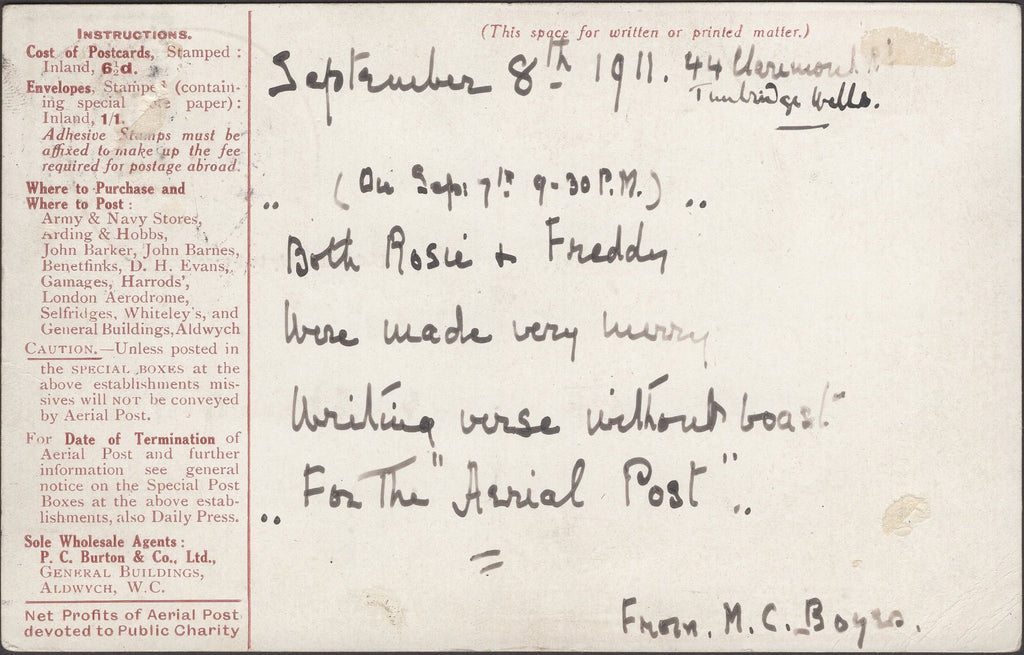 INSTRUCTIONS.
Cost of Postcards, Stamped :
Inland, 6½d.
Envelopes, Stamped (contain-
ing special paper) :
Inland, 1/1.
Adhesive Stamps must be
affixed to make up the fee
required for postage abroad.
Where to Purchase and
Where to Post :
Army & Navy Stores,
Arding & Hobbs,
John Barker, John Barnes,
Benetfinks, D. H. Evans,
Gamages, Harrods',
London Aerodrome,
Selfridges, Whiteley's, and
General Buildings, Aldwych
CAUTION.—Unless posted in
the SPECIAL BOXES at the
above establishments mis-
sives will NOT be conveyed
by Aerial Post.
For Date of Termination of
Aerial Post and further
information see general
notice on the Special Post
Boxes at the above estab-
lishments, also Daily Press.
Sole Wholesale Agents :
P. C. Burton & Co., Ltd.,
GENERAL BUILDINGS,
ALDWYCH, W.C.
Net Profits of Aerial Post
devoted to Public Charity
(This space for written or printed matter.)
September 8th 1911. 44 Claremont
Tunbridge Wells.
(On Sep: 7th 9-30 P.M.)
Both Rosie + Freddy
Were made very merry
Writing verse without boast
For The "Aerial Post"
From. M. C. Boyes.